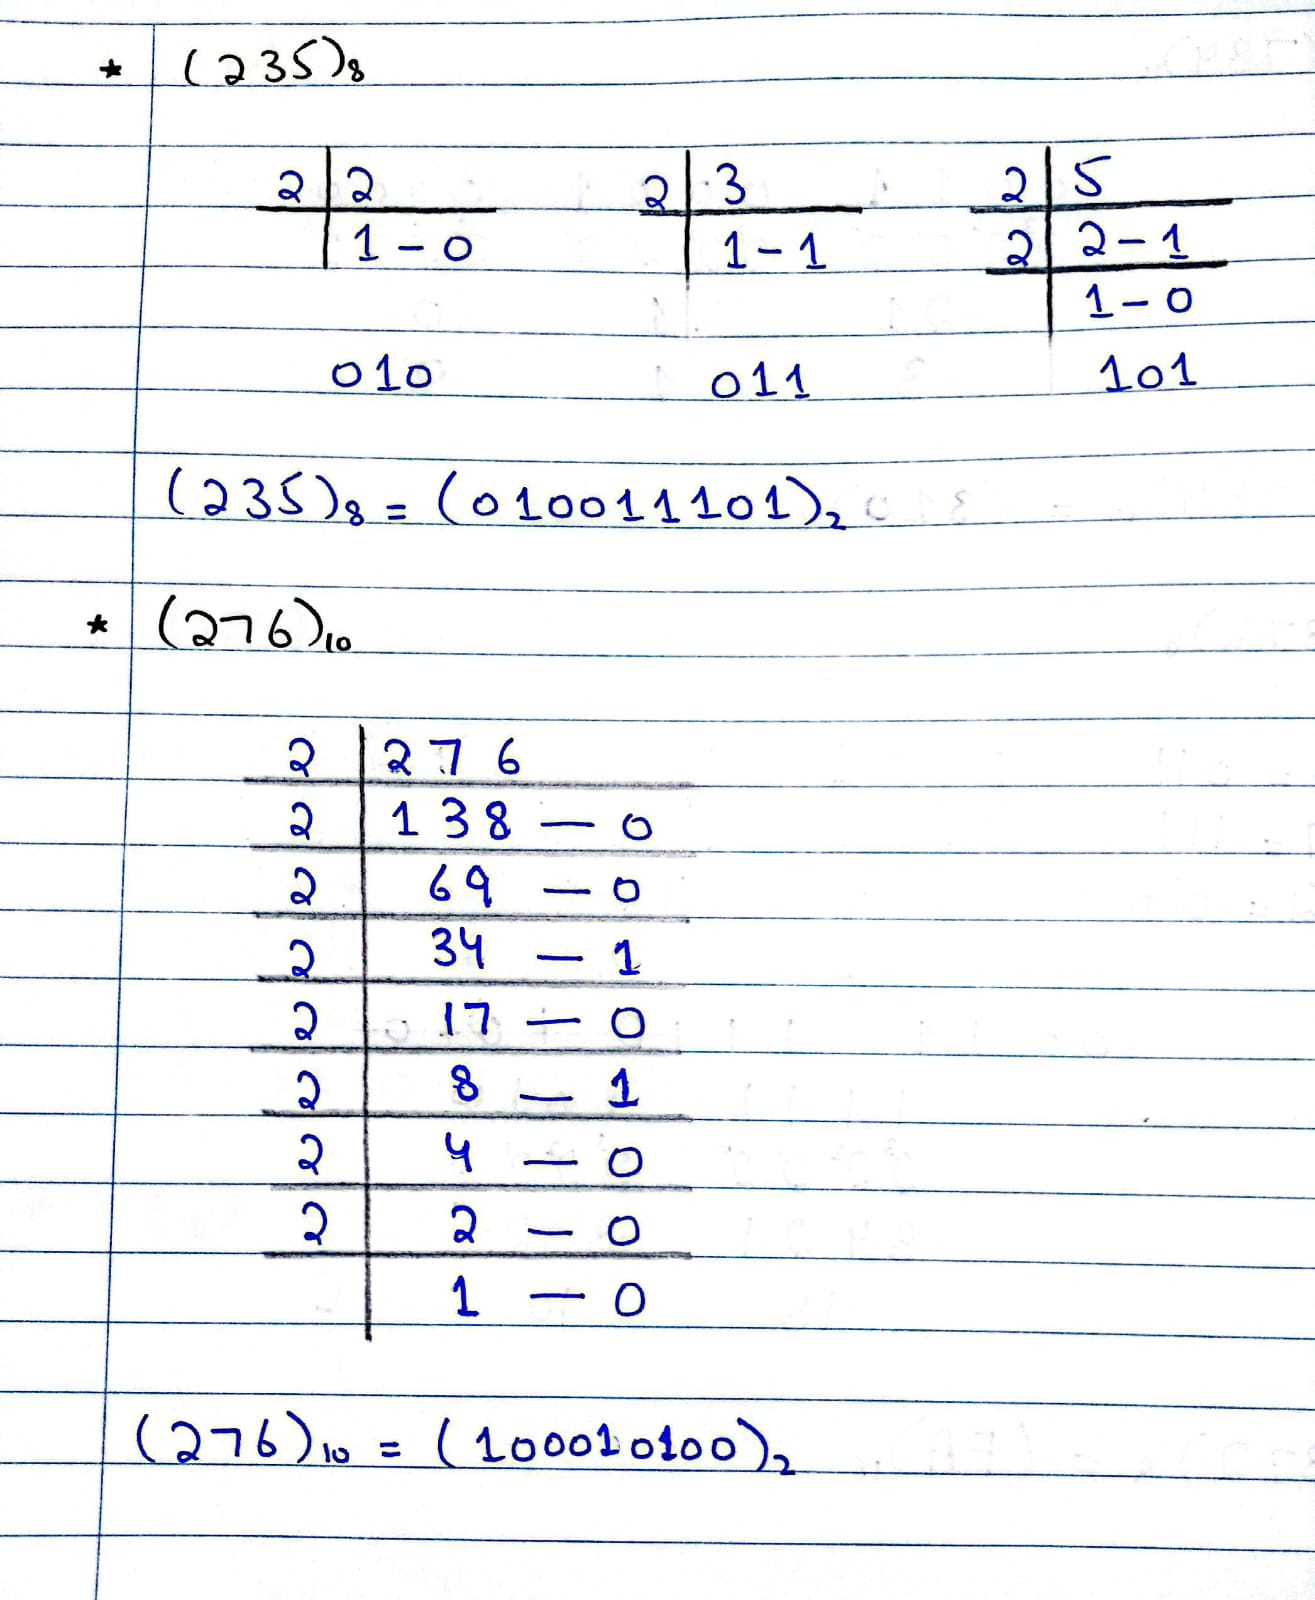 * (235)8
2 | 2    2 | 3    2 | 5
1 - 0    1 - 1    2 | 2 - 1
1 - 0
010    011    101
(235)8 = (010011101)2
* (276)10
2 | 276
2 | 138 — 0
2 | 69 — 0
2 | 34 — 1
2 | 17 — 0
2 | 8 — 1
2 | 4 — 0
2 | 2 — 0
1 — 0
(276)10 = (100010100)2